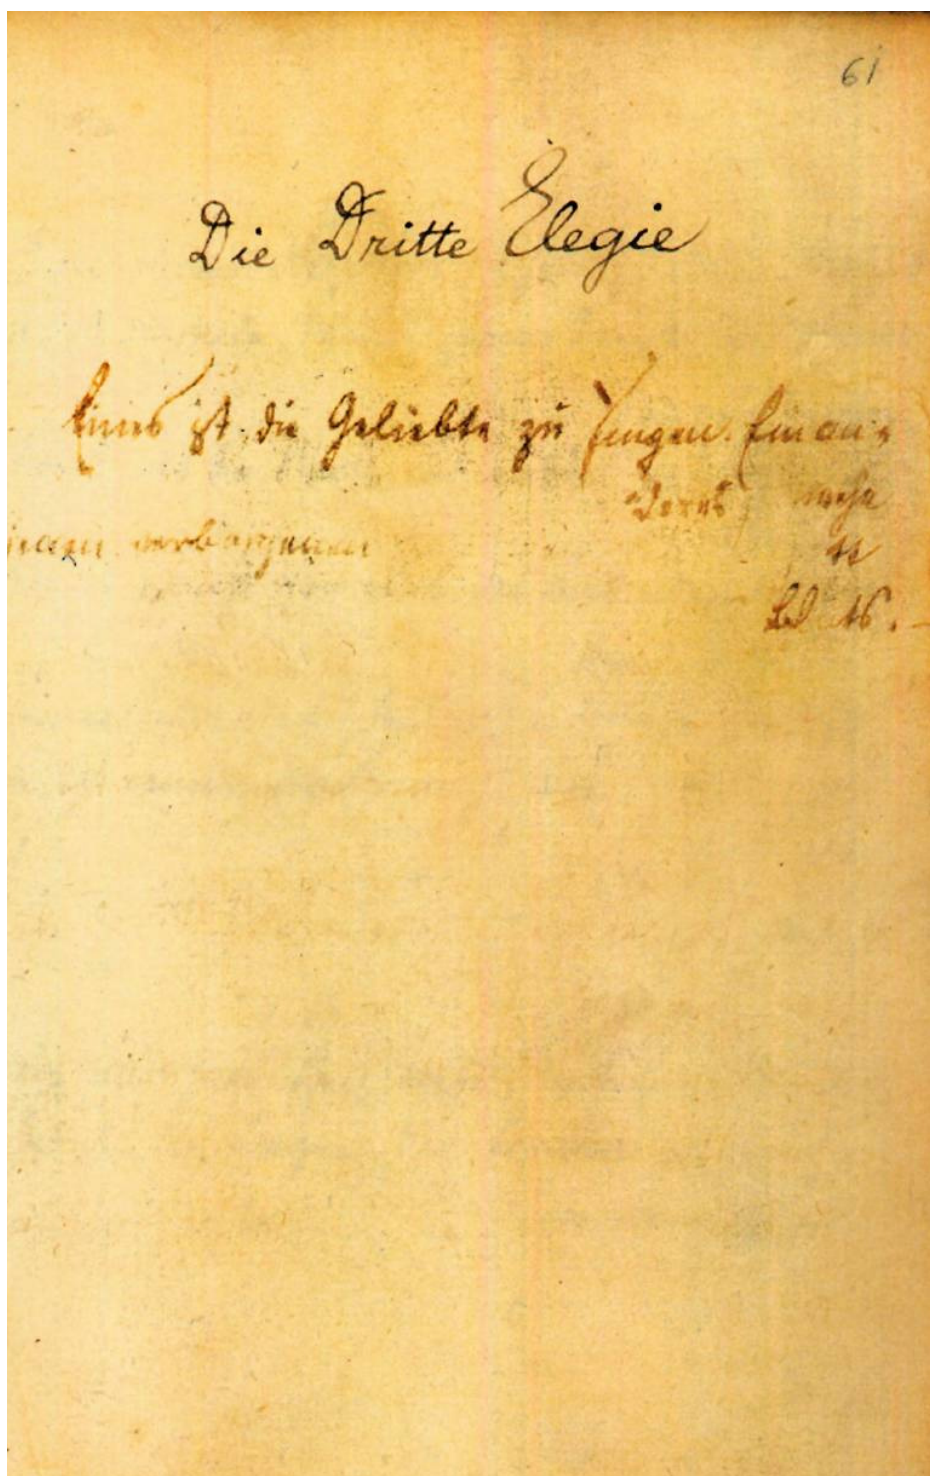 61
Die Dritte Elegie
Eines ist, die Geliebte zu singen. Ein an-
deres wehe
jenen verborgenen